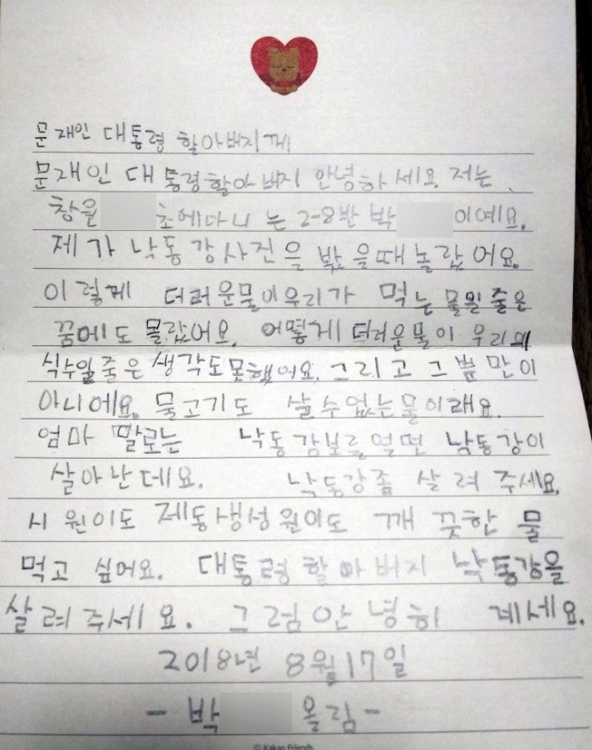 문재인 대통령 할아버지께
문재인 대통령할아버지 안녕하세요 저는
창원 초에다니는 2-8반 박 이예요.
제가 낙동강사진을 밨을때놀랐어요.
이렇게 더러운물이우리가 먹는 물일줄은
꿈에도 몰랐어요. 어떻게 더러운물이 우리에
식수일줄은 생각도못했어요. 그리고 그뿐만이
아니에요. 물고기도 살수없는물이래요.
엄마 말로는 낙동강보를열면 낙동강이
살아난데요. 낙동강좀 살려주세요.
시원이도 제동생성원이도 깨끗한 물
먹고 싶어요. 대통령할아버지 낙동강을
살려주세요. 그럼안녕히 계세요.
2018년 8월17일
- 박 올림-
© Kakao Friends